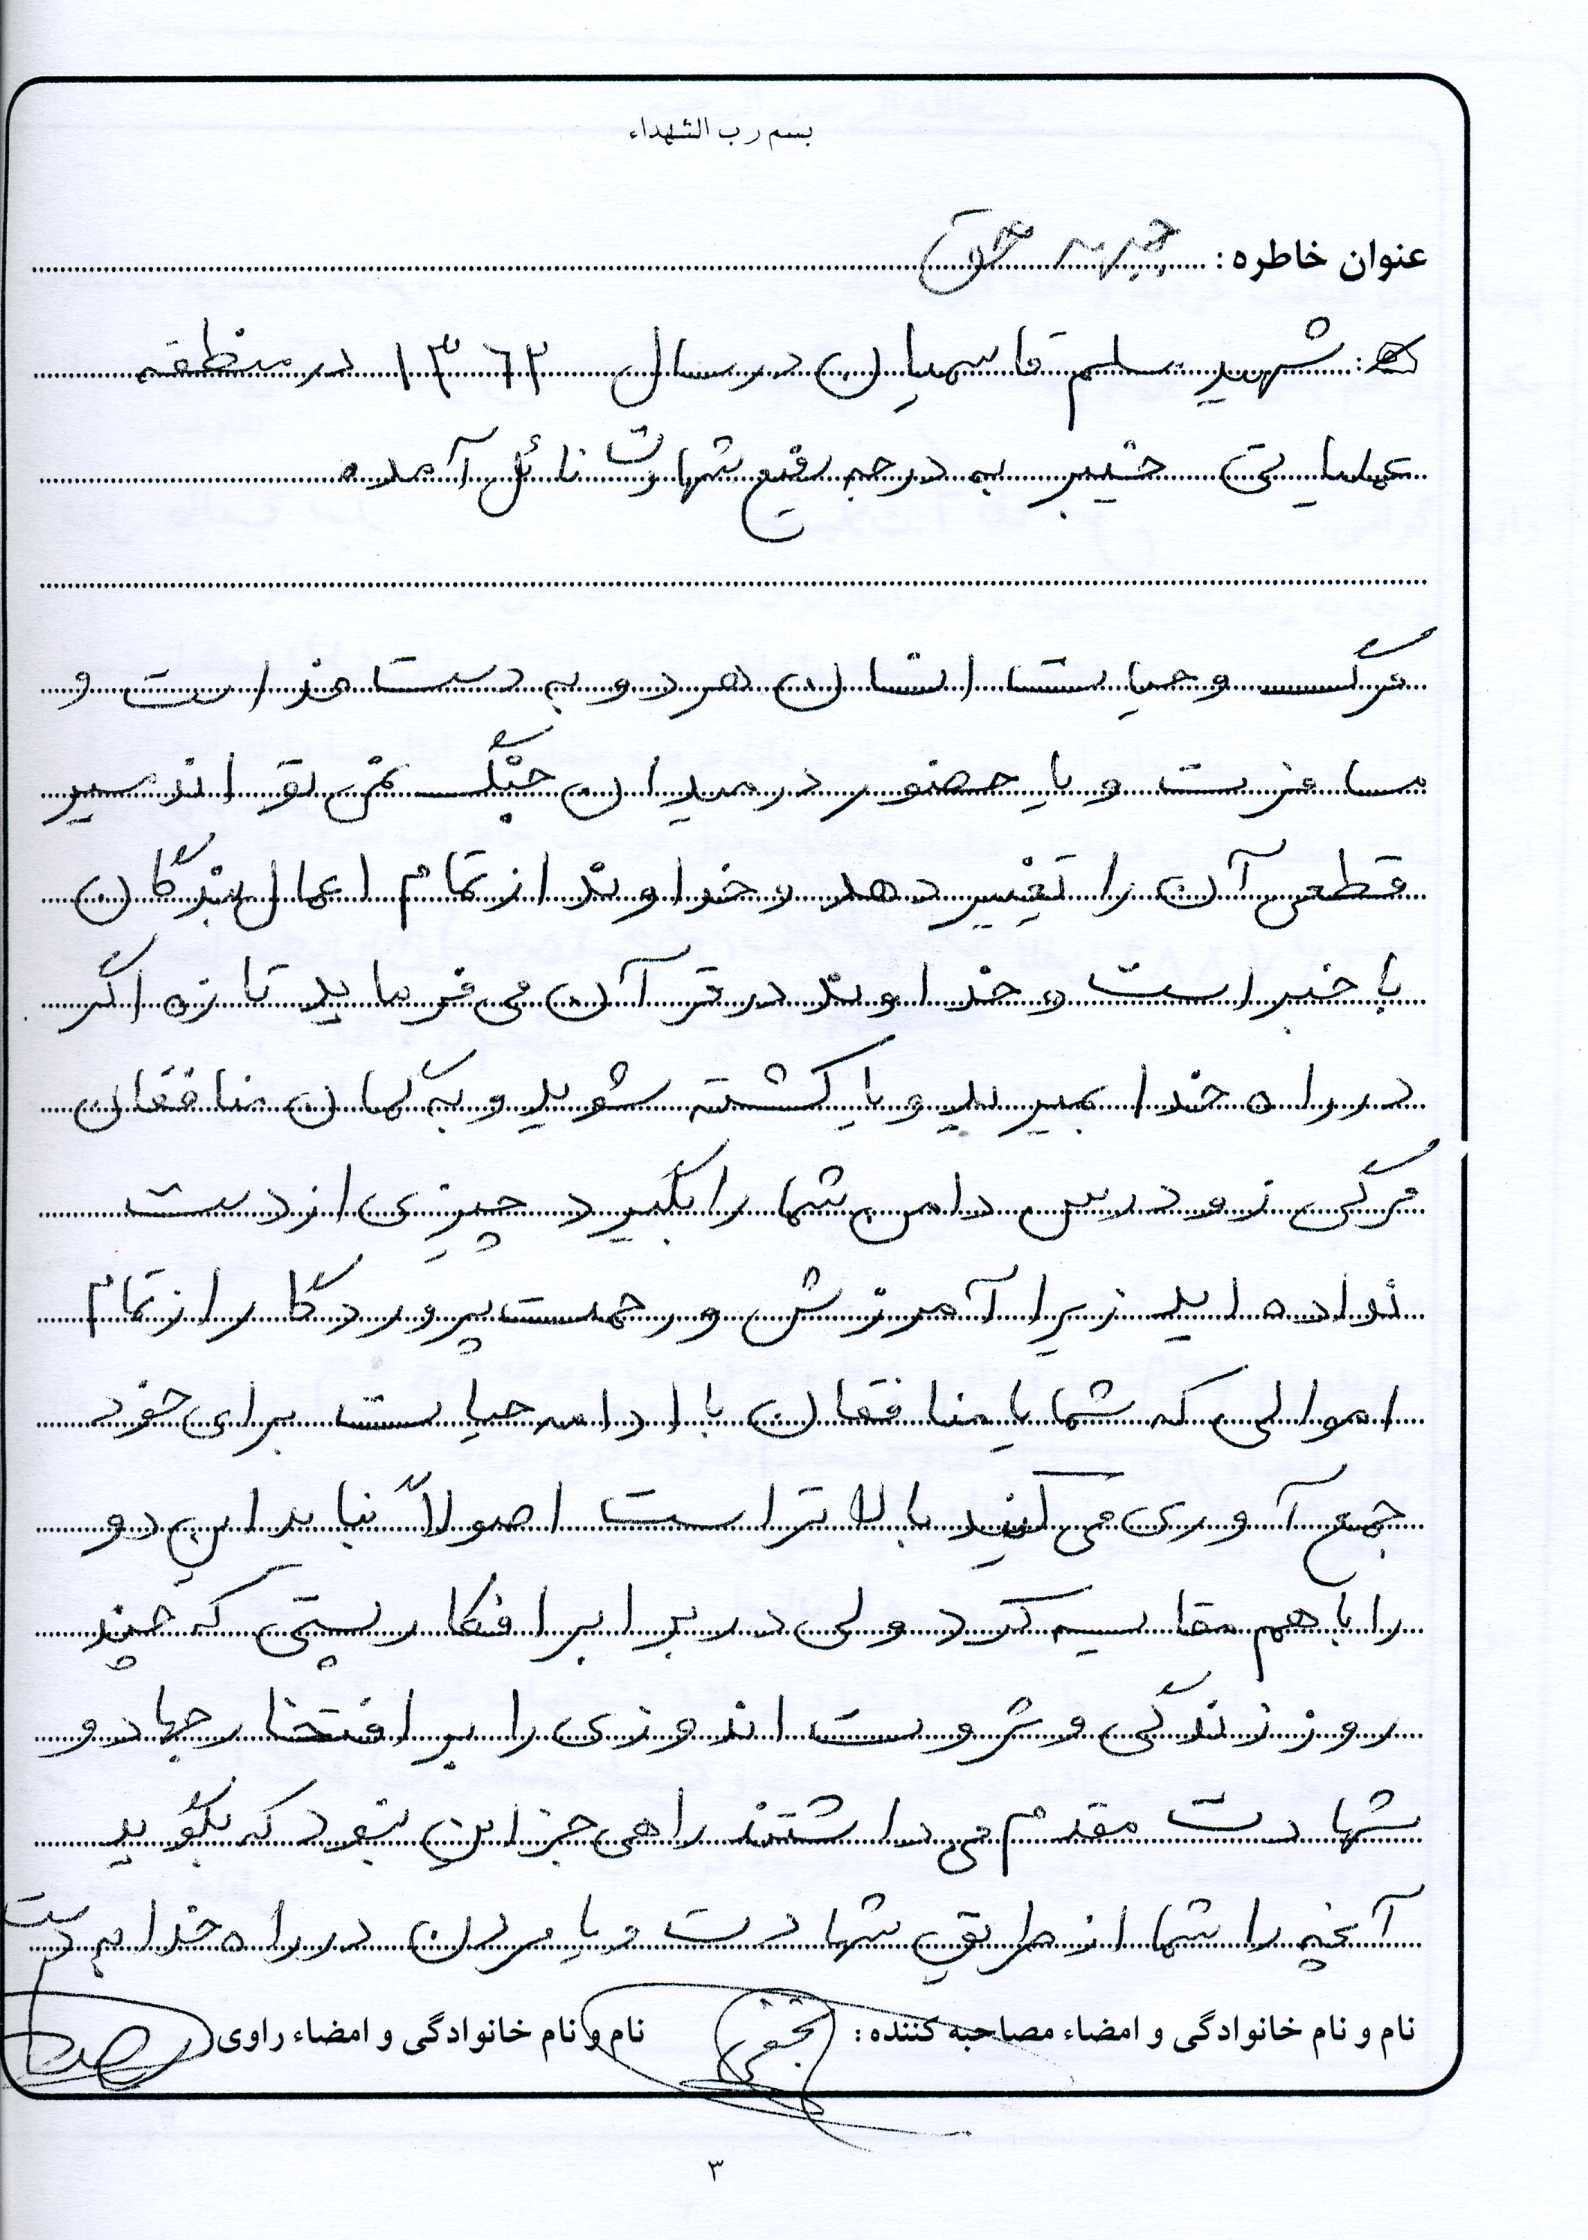 بسم رب الشهداء
عنوان خاطره : جبهه حق
شهید سلم قاسمیان در سال ۱۳۶۲ در منطقه
عملیاتی خیبر به درجه رفیع شهادت نائل آمده
مرگ و حیات انسان هر دو به دست خداست و
مسافرت و یا حضور در میدان جنگ نمی تواند مسیر
قطعی آن را تغییر دهد و خداوند از تمام اعمال بندگان
با خبر است و خداوند در قرآن می فرماید تازه اگر
در راه خدا بمیرید و یا کشته شوید و به گمان منافقان
مرگی زودرس دامن شما را بگیرد چیزی از دست
نداده اید زیرا آمرزش و رحمت پروردگار از تمام
اموالی که شما یا منافقان با ادامه حیات برای خود
جمع آوری می کنید بالاتر است اصولاً نباید این دو
را با هم مقایسه کرد ولی در برابر افکار پستی که چند
روز زندگی و ثروت اندوزی را بر افتخار جهاد و
شهادت مقدم می داشتند راهی جز این نبود که بگوید
آنچه را شما از طریق شهادت و یا مردن در راه خدا بدست
نام و نام خانوادگی و امضاء مصاحبه کننده : نام و نام خانوادگی و امضاء راوی
۳